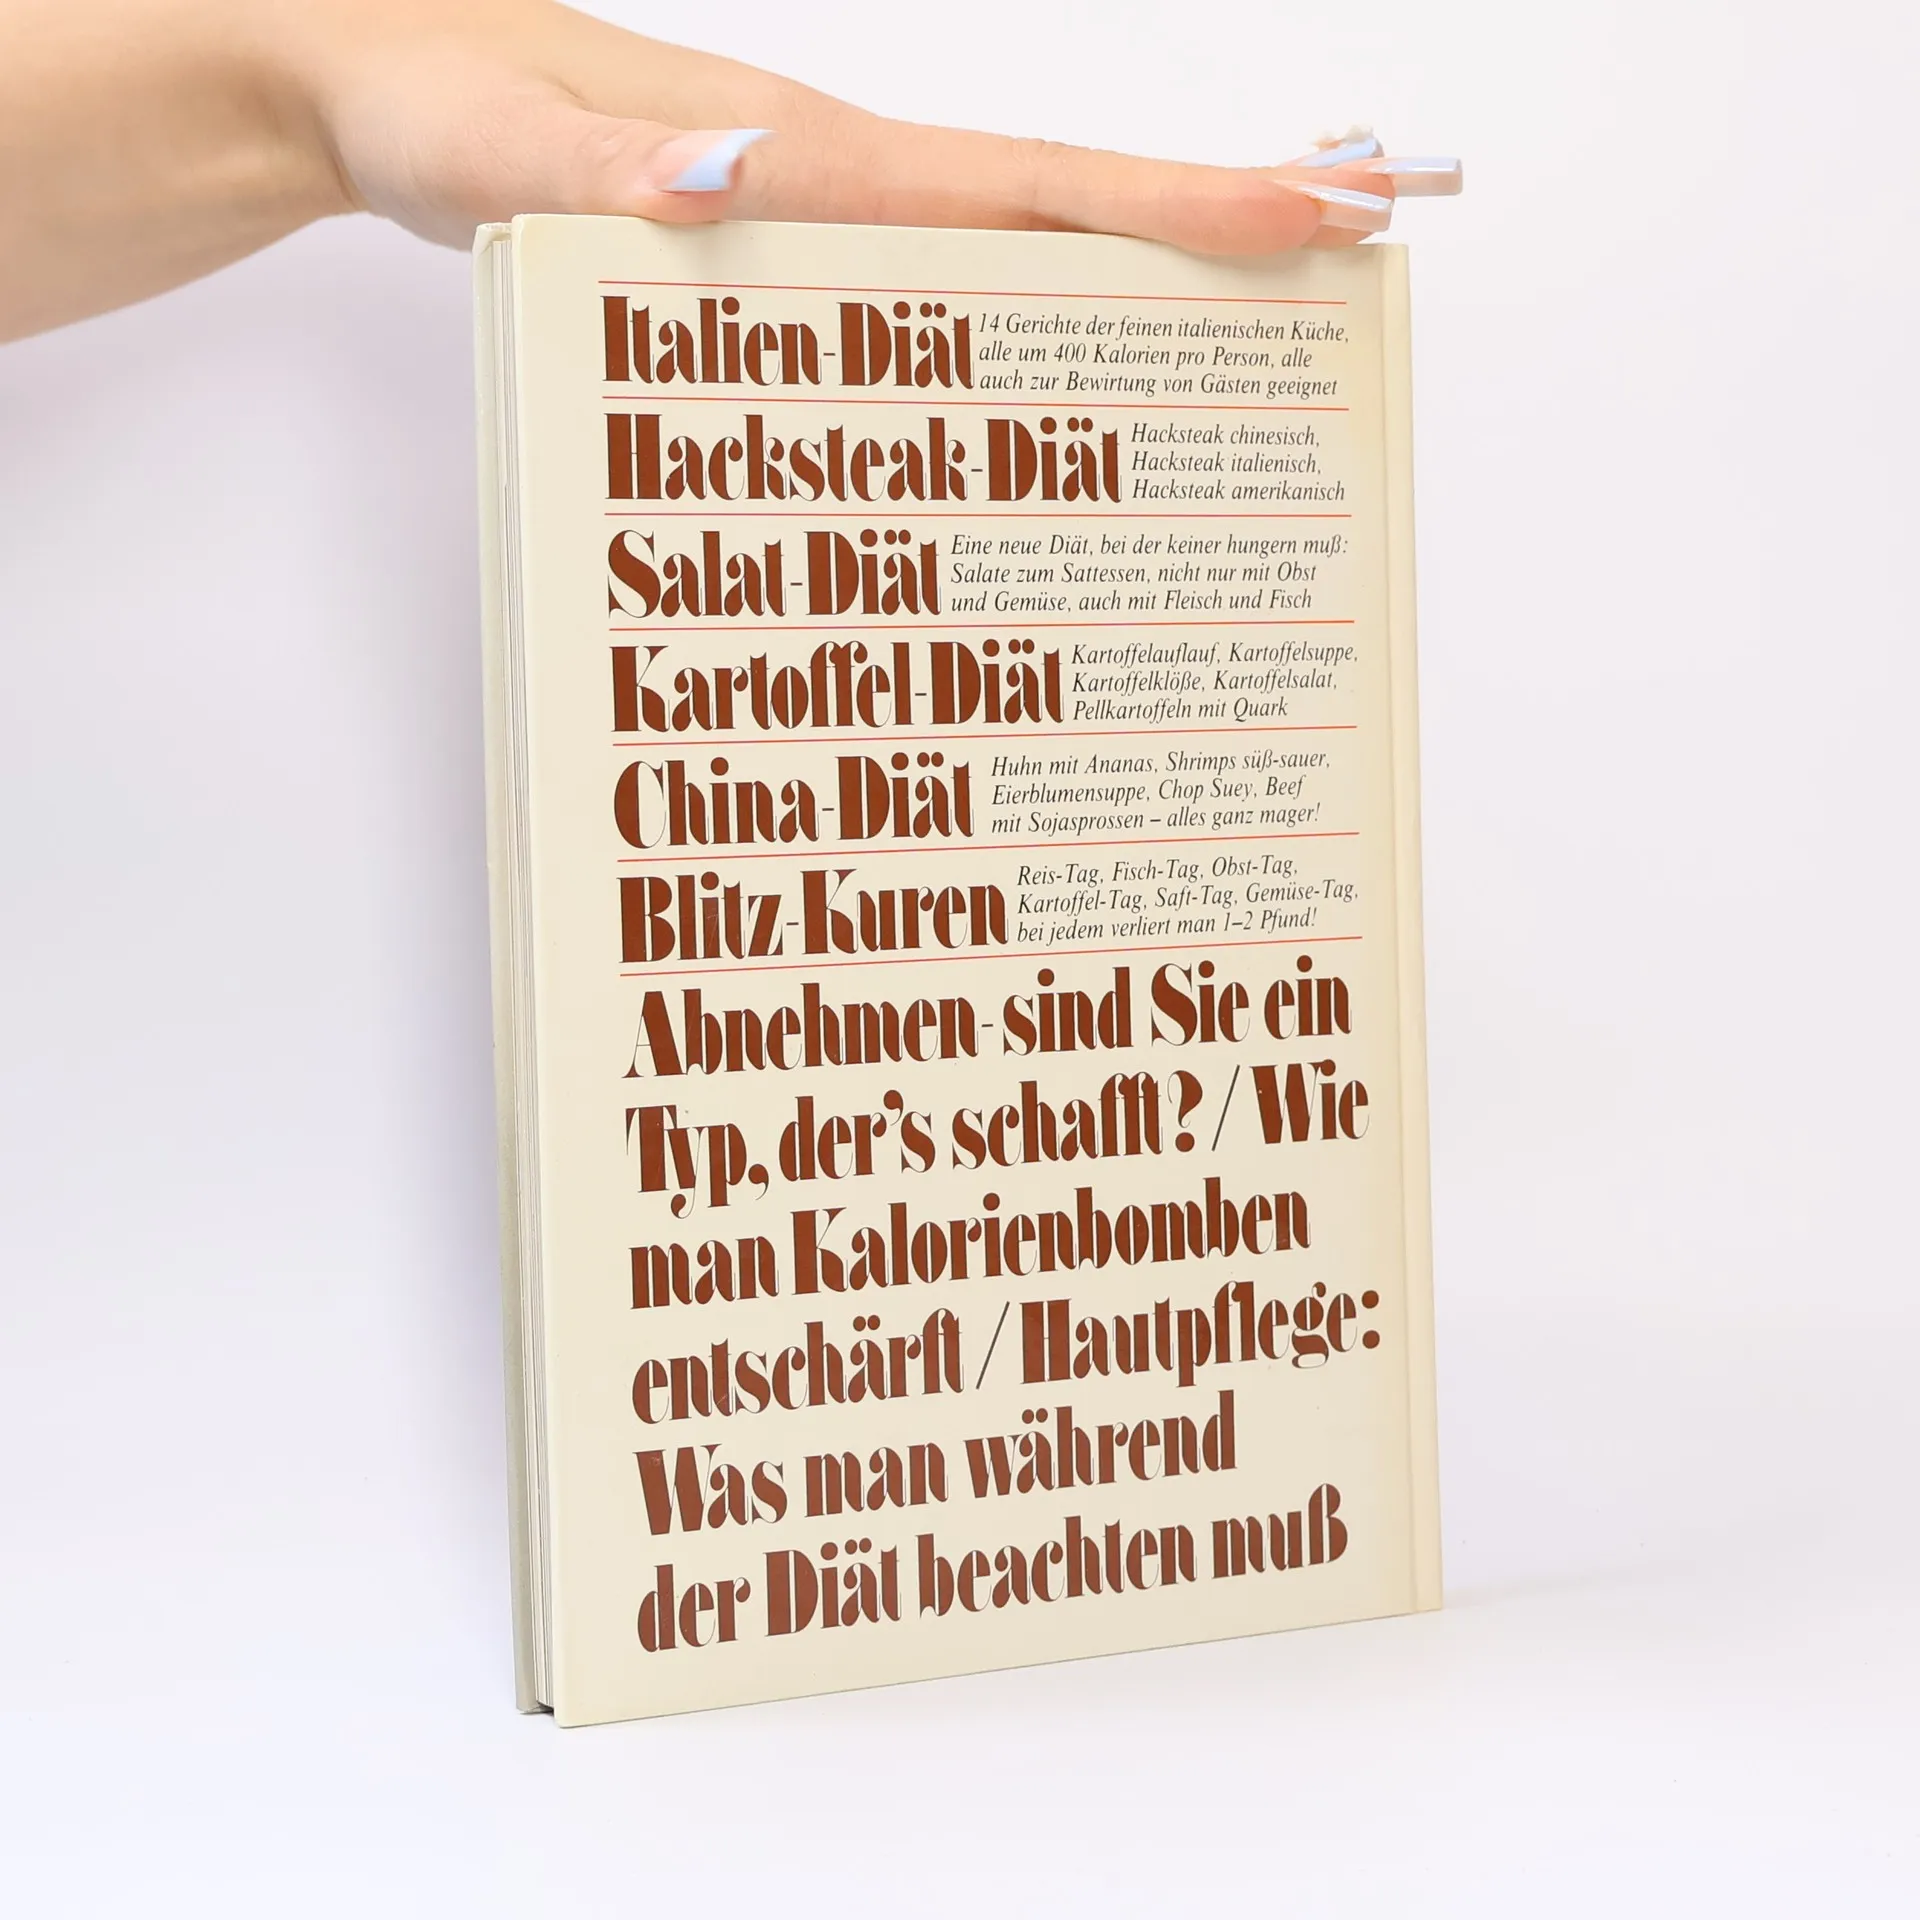 Italien-Diät
14 Gerichte der feinen italienischen Küche,
alle um 400 Kalorien pro Person, alle
auch zur Bewirtung von Gästen geeignet
Hacksteak-Diät
Hacksteak chinesisch,
Hacksteak italienisch,
Hacksteak amerikanisch
Salat-Diät
Eine neue Diät, bei der keiner hungern muß:
Salate zum Sattessen, nicht nur mit Obst
und Gemüse, auch mit Fleisch und Fisch
Kartoffel-Diät
Kartoffelauflauf, Kartoffelsuppe,
Kartoffelklöße, Kartoffelsalat,
Pellkartoffeln mit Quark
China-Diät
Huhn mit Ananas, Shrimps süß-sauer,
Eierblumensuppe, Chop Suey, Beef
mit Sojasprossen – alles ganz mager!
Blitz-Kuren
Reis-Tag, Fisch-Tag, Obst-Tag,
Kartoffel-Tag, Saft-Tag, Gemüse-Tag,
bei jedem verliert man 1–2 Pfund!
Abnehmen-sind Sie ein
Typ, der's schafft? / Wie
man Kalorienbomben
entschärft / Hautpflege:
Was man während
der Diät beachten muß